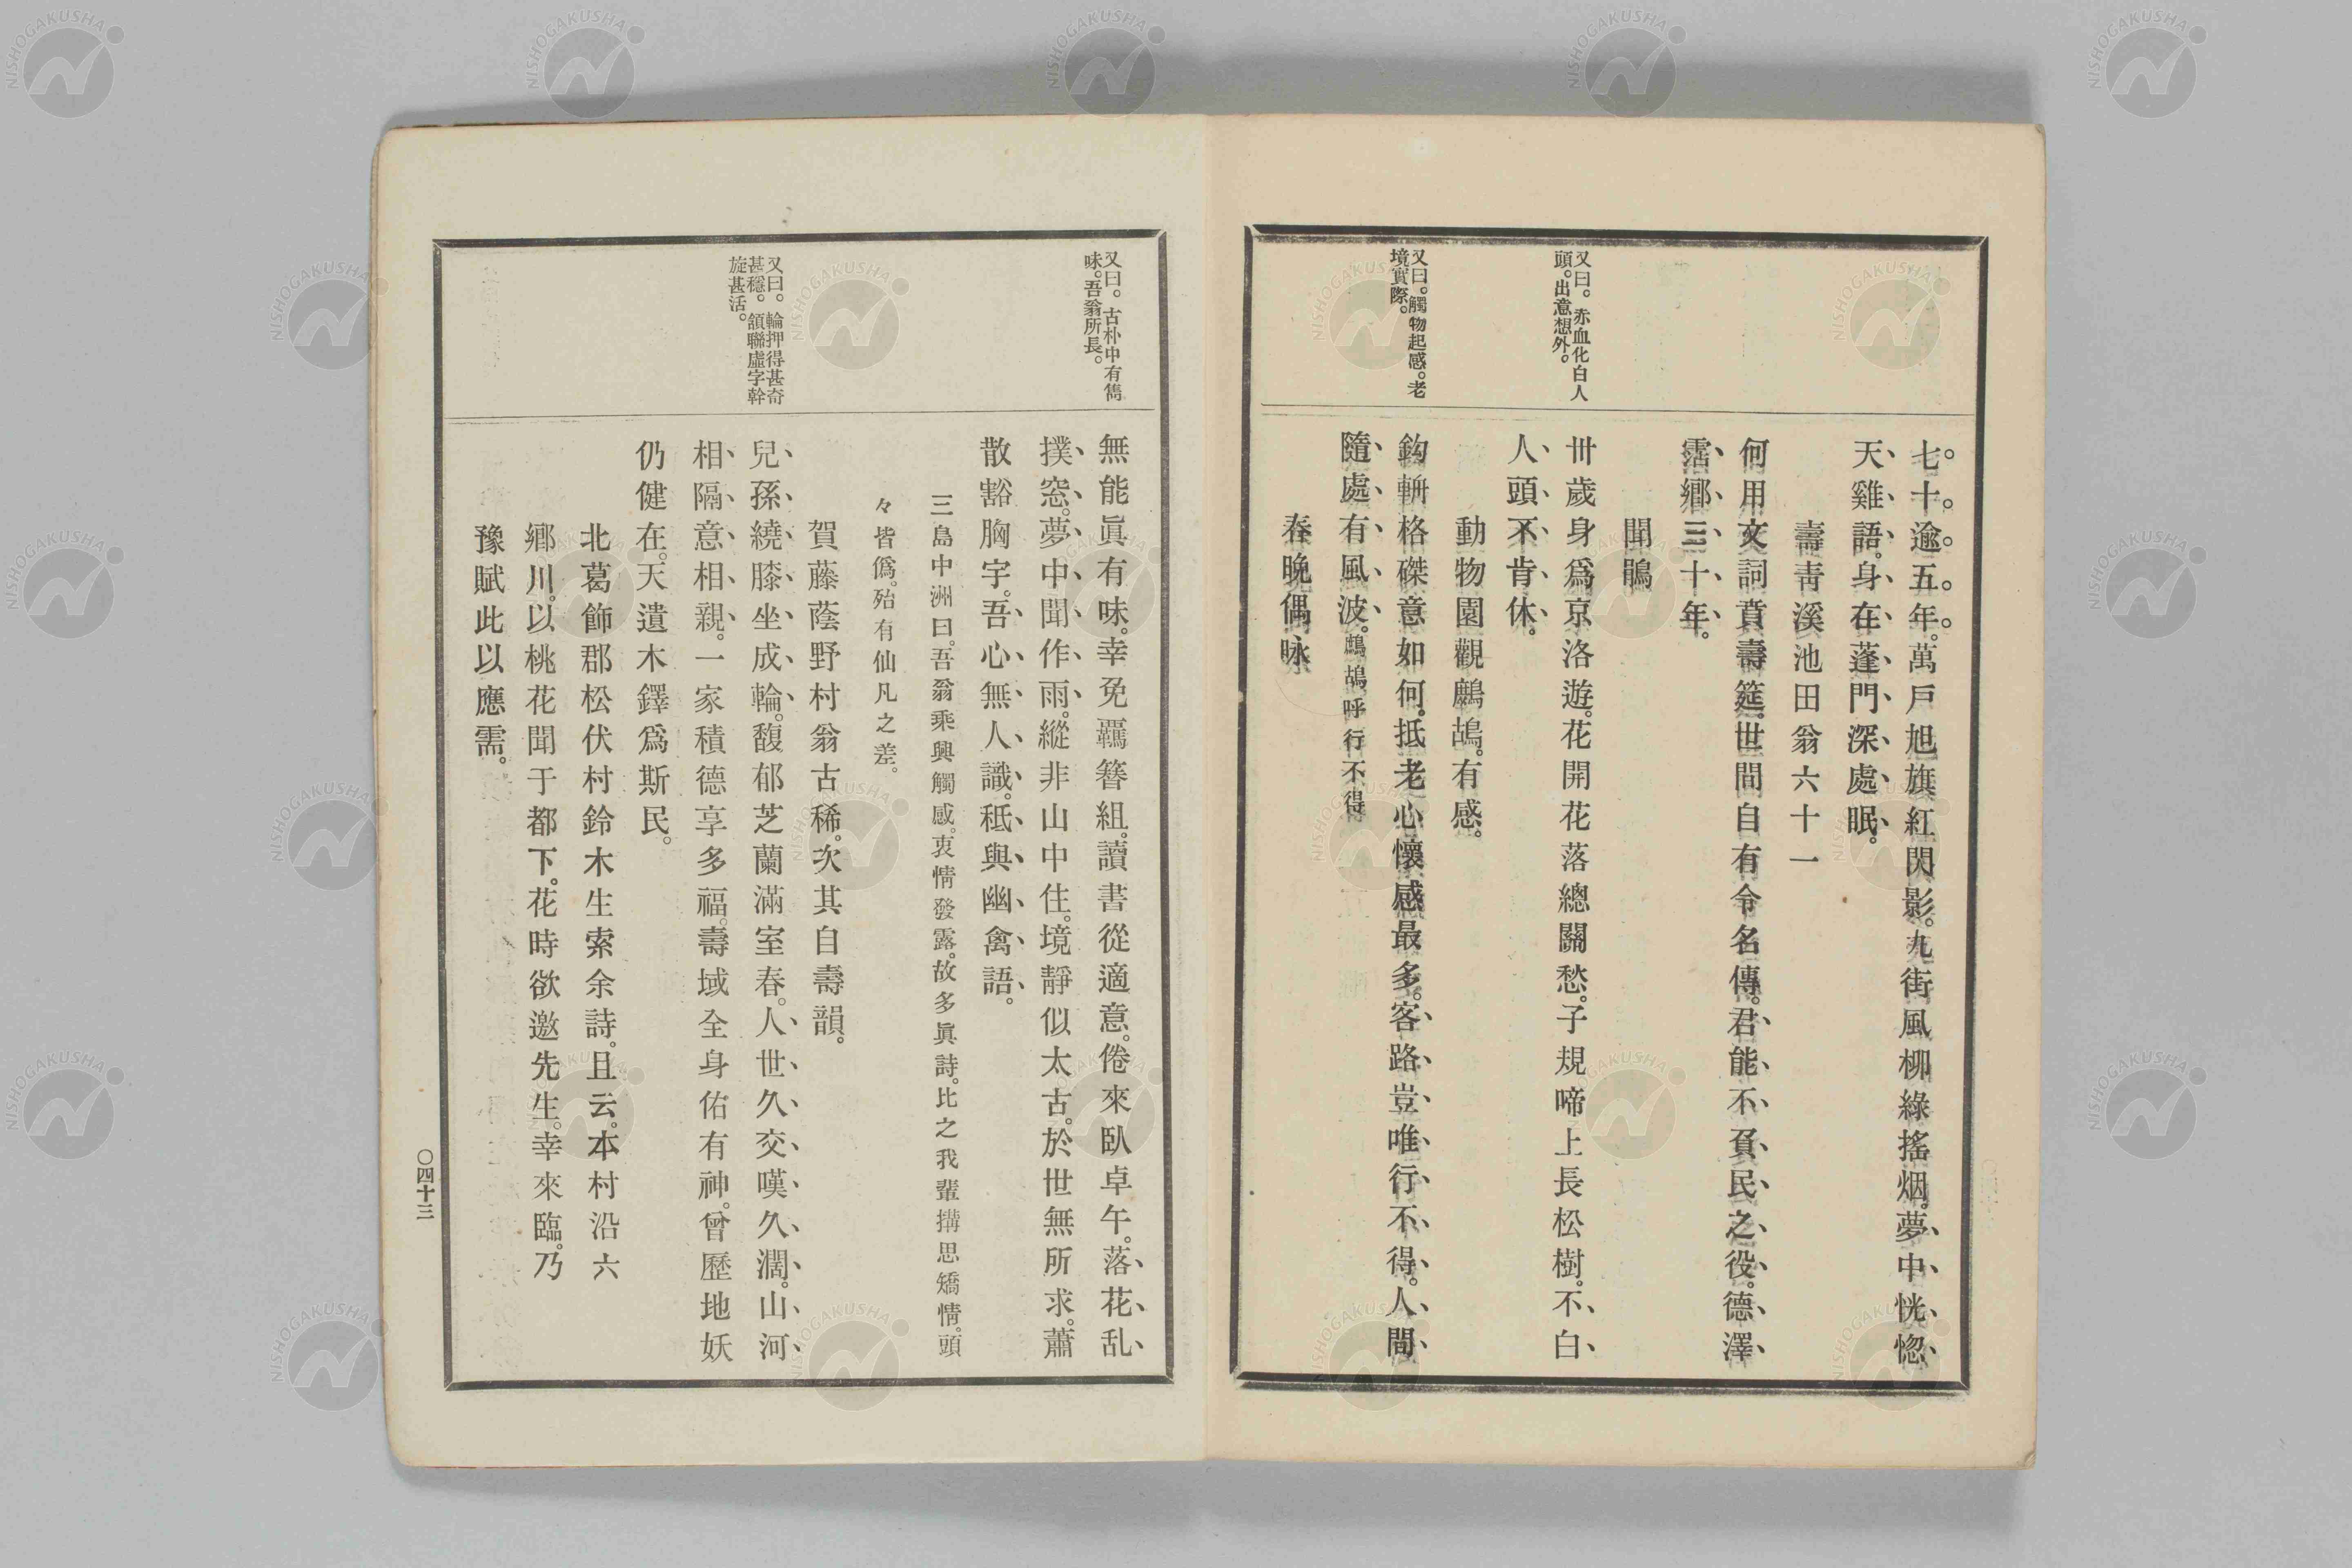 七十逾五年。萬戶旭旗紅閃影。九街風柳綠搖烟。夢中恍惚
天雞語。身在蓬門深處眠。
壽靑溪池田翁六十一
何用文詞賁壽筵。世間自有令名傳。君能不負民之役。德澤
霑鄕三十年。
聞鵑
卅歲身爲京洛遊。花開花落總關愁。子規啼上長松樹。不白
人頭不肯休。
動物園觀鷓鴣。有感。
鈎輈格磔意如何。抵老心懷感最多。客路豈唯行不得。人間
隨處有風波。鷓鴣呼行不得
春晩偶咏
又曰。赤血化白人
頭。出意想外。
又曰。觸物起感。老
境實際。
無能眞有味。幸免羈簪組。讀書從適意。倦來臥卓午。落花乱
撲窓。夢中聞作雨。縱非山中住。境靜似太古。於世無所求。蕭
散豁胸宇。吾心無人識。秪與幽禽語。
三島中洲曰。吾翁乘興觸感。衷情發露。故多眞詩。比之我輩搆思矯情。頭
々皆僞。殆有仙凡之差。
賀藤蔭野村翁古稀。次其自壽韻。
兒孫繞膝坐成輪。馥郁芝蘭滿室春。人世久交嘆久濶。山河
相隔意相親。一家積德享多福。壽域全身佑有神。曾歷地妖
仍健在。天遺木鐸爲斯民。
北葛飾郡松伏村鈴木生索余詩。且云。本村沿六
鄕川。以桃花聞于都下。花時欲邀先生。幸來臨。乃
豫賦此以應需。
又曰。古朴中有雋
味。吾翁所長。
又曰。輪押得甚奇
甚穩。頷聯虛字幹
旋甚活。
〇四十三
NISHOGAKUSHA